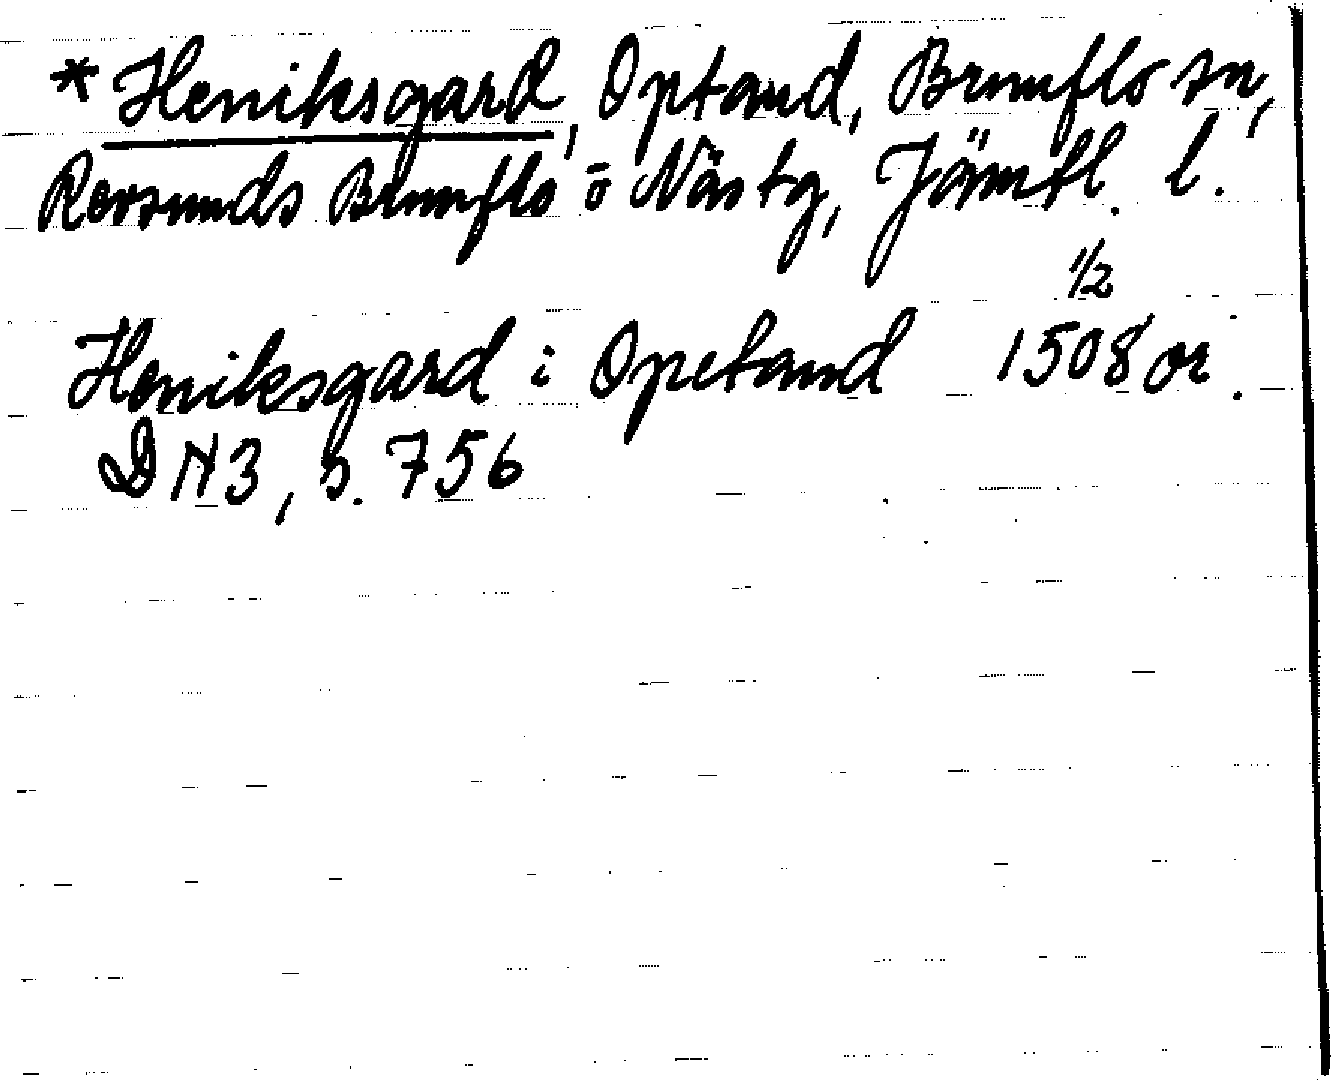 *Heniksgard, Optand, Brunflo sn,
Revsunds Brunflo o Näs tg, Jämtl. l.
1/2
Heniksgard i Opetand 1508 or.
DN3, s. 756